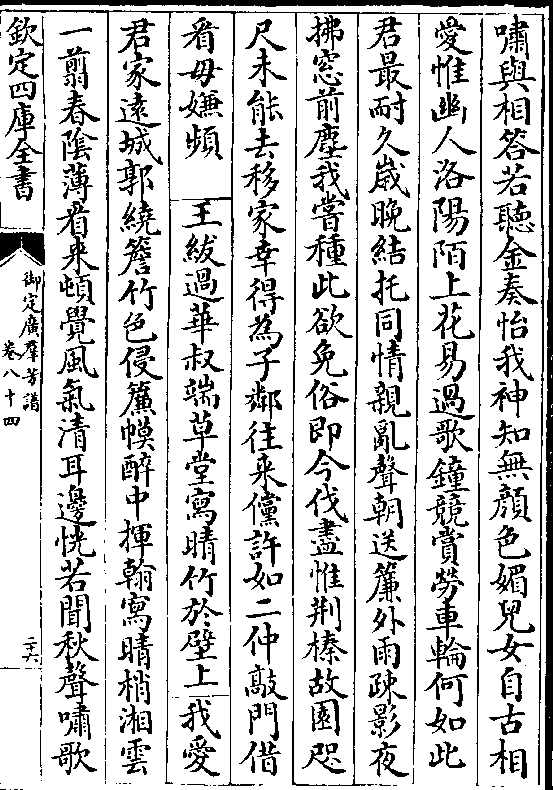 嘯與相答若聽金奏怡我神知無顔色媚兒女自古相
愛惟幽人洛陽陌上花易過歌鐘競賞勞車輪何如此
君最耐久歳晚結托同情親亂聲朝送簾外雨疎影夜
拂窓前塵我嘗種此欲免俗即今伐盡惟荆榛故園咫
尺未能去移家幸得為子鄰往來儻許如二仲敲門借
看毋嫌頻 王紱過華叔端草堂寫晴竹於壁上 我愛
君家遠城郭繞簷竹色侵簾幙醉中揮翰寫晴梢湘雲
一翦春陰薄看來頓覺風氣清耳邊恍若聞秋聲嘯歌
欽定四庫全書
御定廣羣芳譜
卷八十四
二六